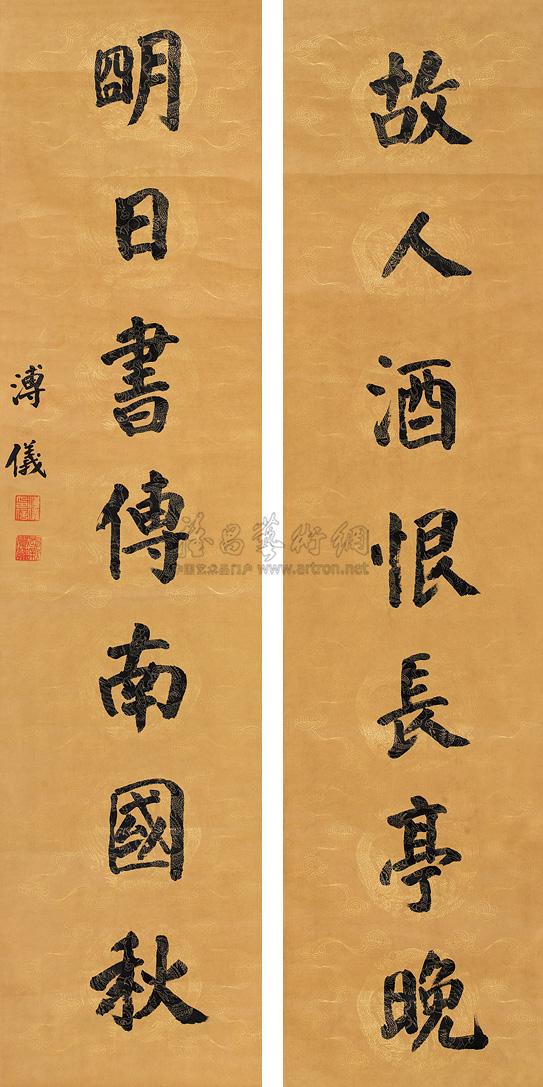 故人酒恨長亭晚
明日書傳南國秋
溥儀
雅昌藝術網
中国艺术品门户 www.artron.net